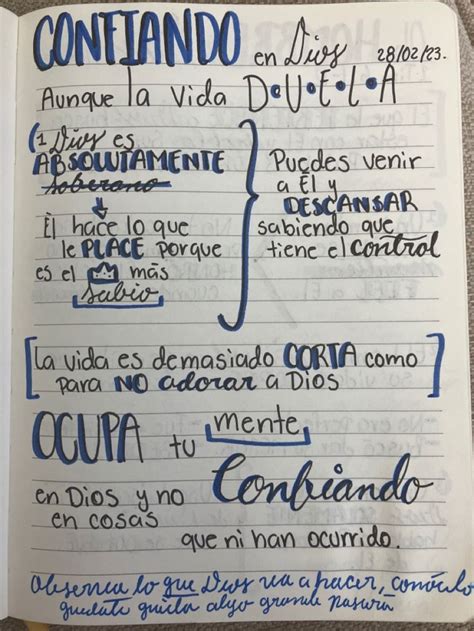 CONFIANDO en Dios 28/02/23.
Aunque la vida D•U•E•L•A
(1 Dios es
ABSOLUTAMENTE
Soberano
Él hace lo que
le PLACE porque
es el más
sabio
Puedes venir
a Él y
DESCANSAR
sabiendo que
tiene el control
[La vida es demasiado CORTA como
para NO adorar a Dios]
OCUPA tu mente
Confiando
en Dios y no
en cosas
que ni han ocurrido.
Observa lo que Dios va a hacer,
quedate quieta algo grande